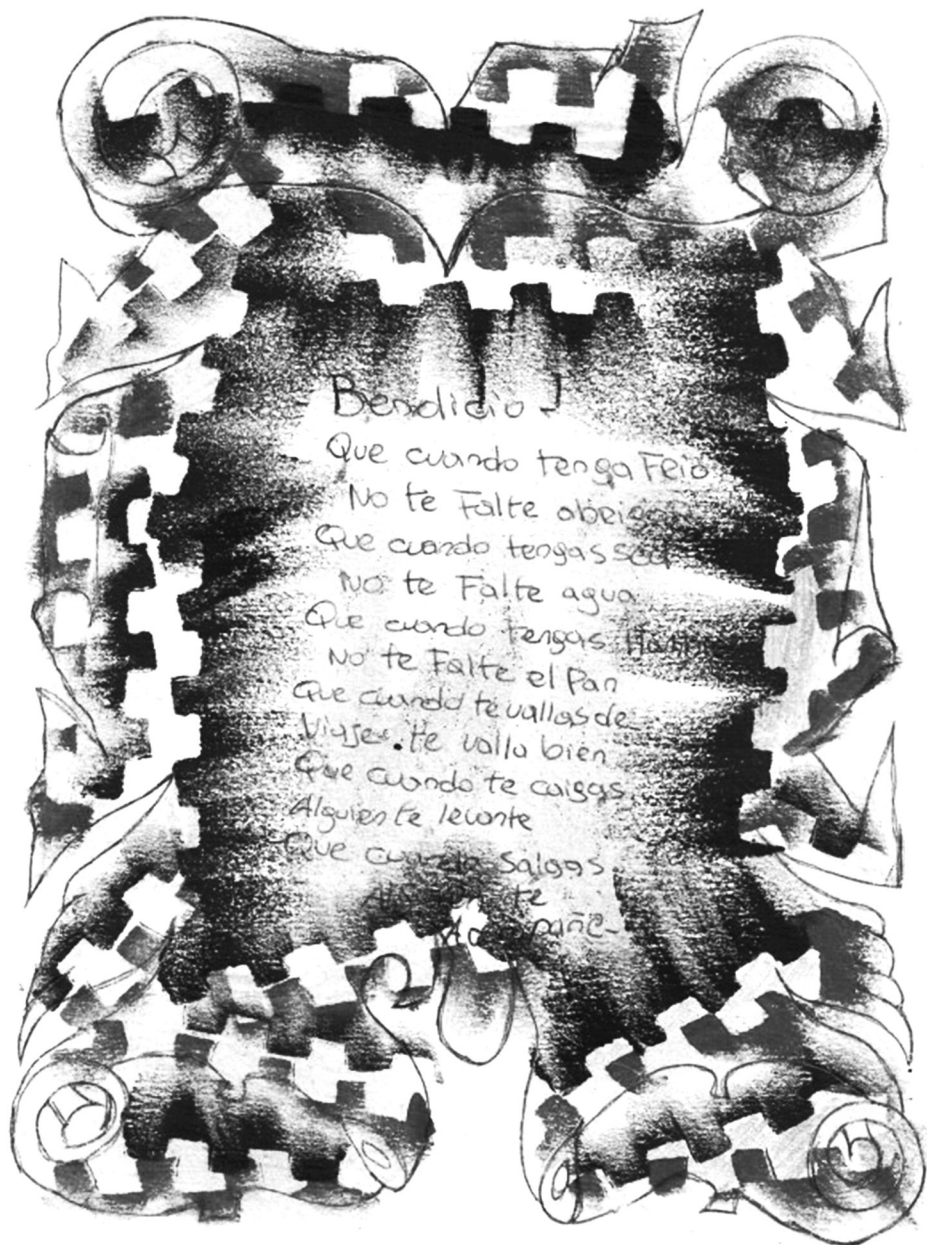 Bendicio-
Que cuando tenga Feio
No te Falte abeigo
Que cuando tengas sed
No te Falte agua
Que cuando tengas Hambre
No te Falte el Pan
Que cuando te vallas de
Viaje. te valla bien
Que cuando te caigas
Alguien te levante
Que cuando Salgas
te